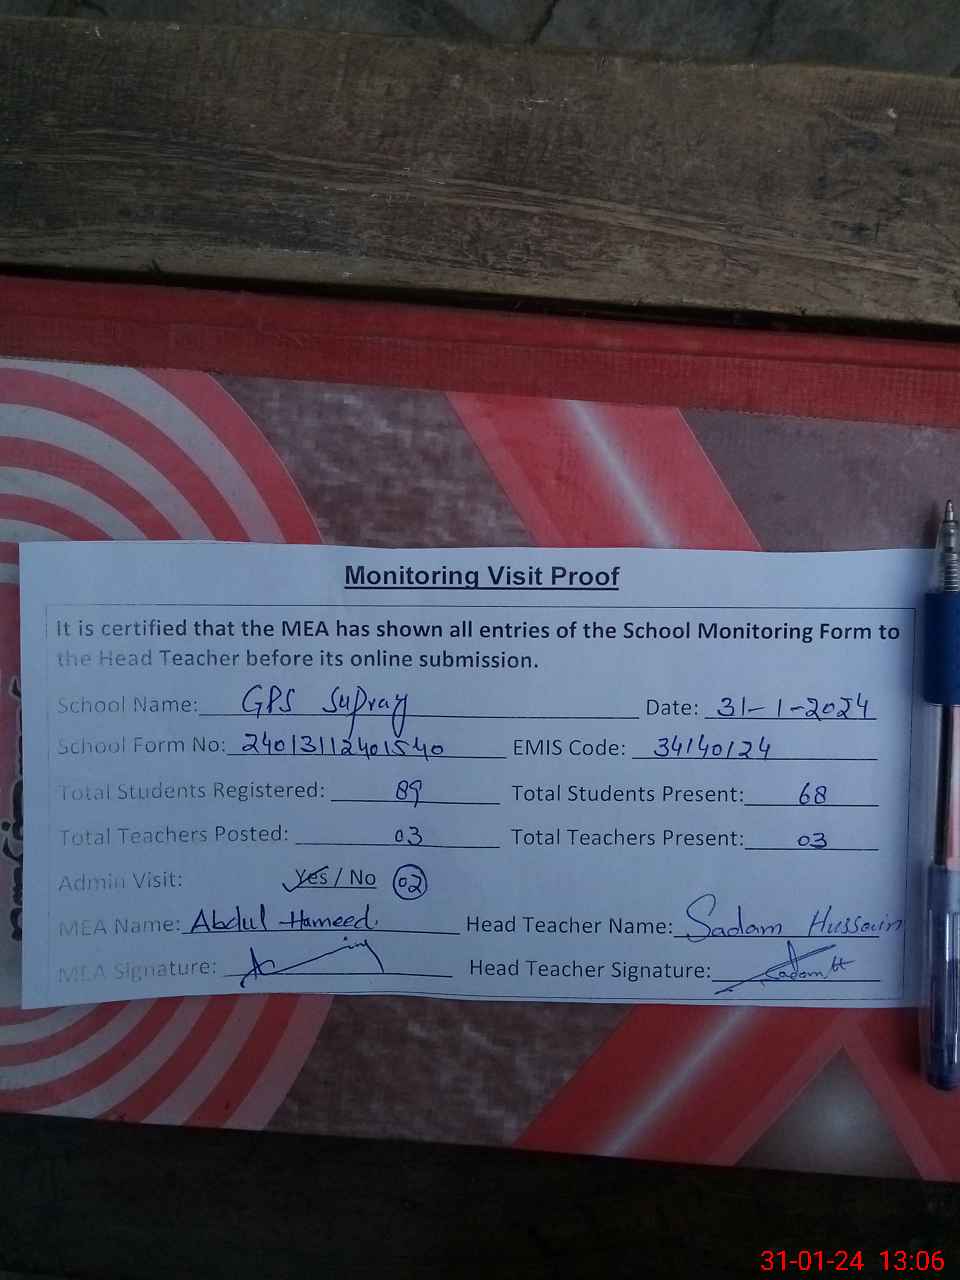 Monitoring Visit Proof
It is certified that the MEA has shown all entries of the School Monitoring Form to
the Head Teacher before its online submission.
School Name: GPS Supray Date: 31-1-2024
School Form No: 24013112401540 EMIS Code: 34140124
Total Students Registered: 89 Total Students Present: 68
Total Teachers Posted: 03 Total Teachers Present: 03
Admin Visit: Yes / No 02
MEA Name: Abdul Hameed. Head Teacher Name: Sadam Hussain
MEA Signature: Head Teacher Signature: Sadam H
31-01-24 13:06